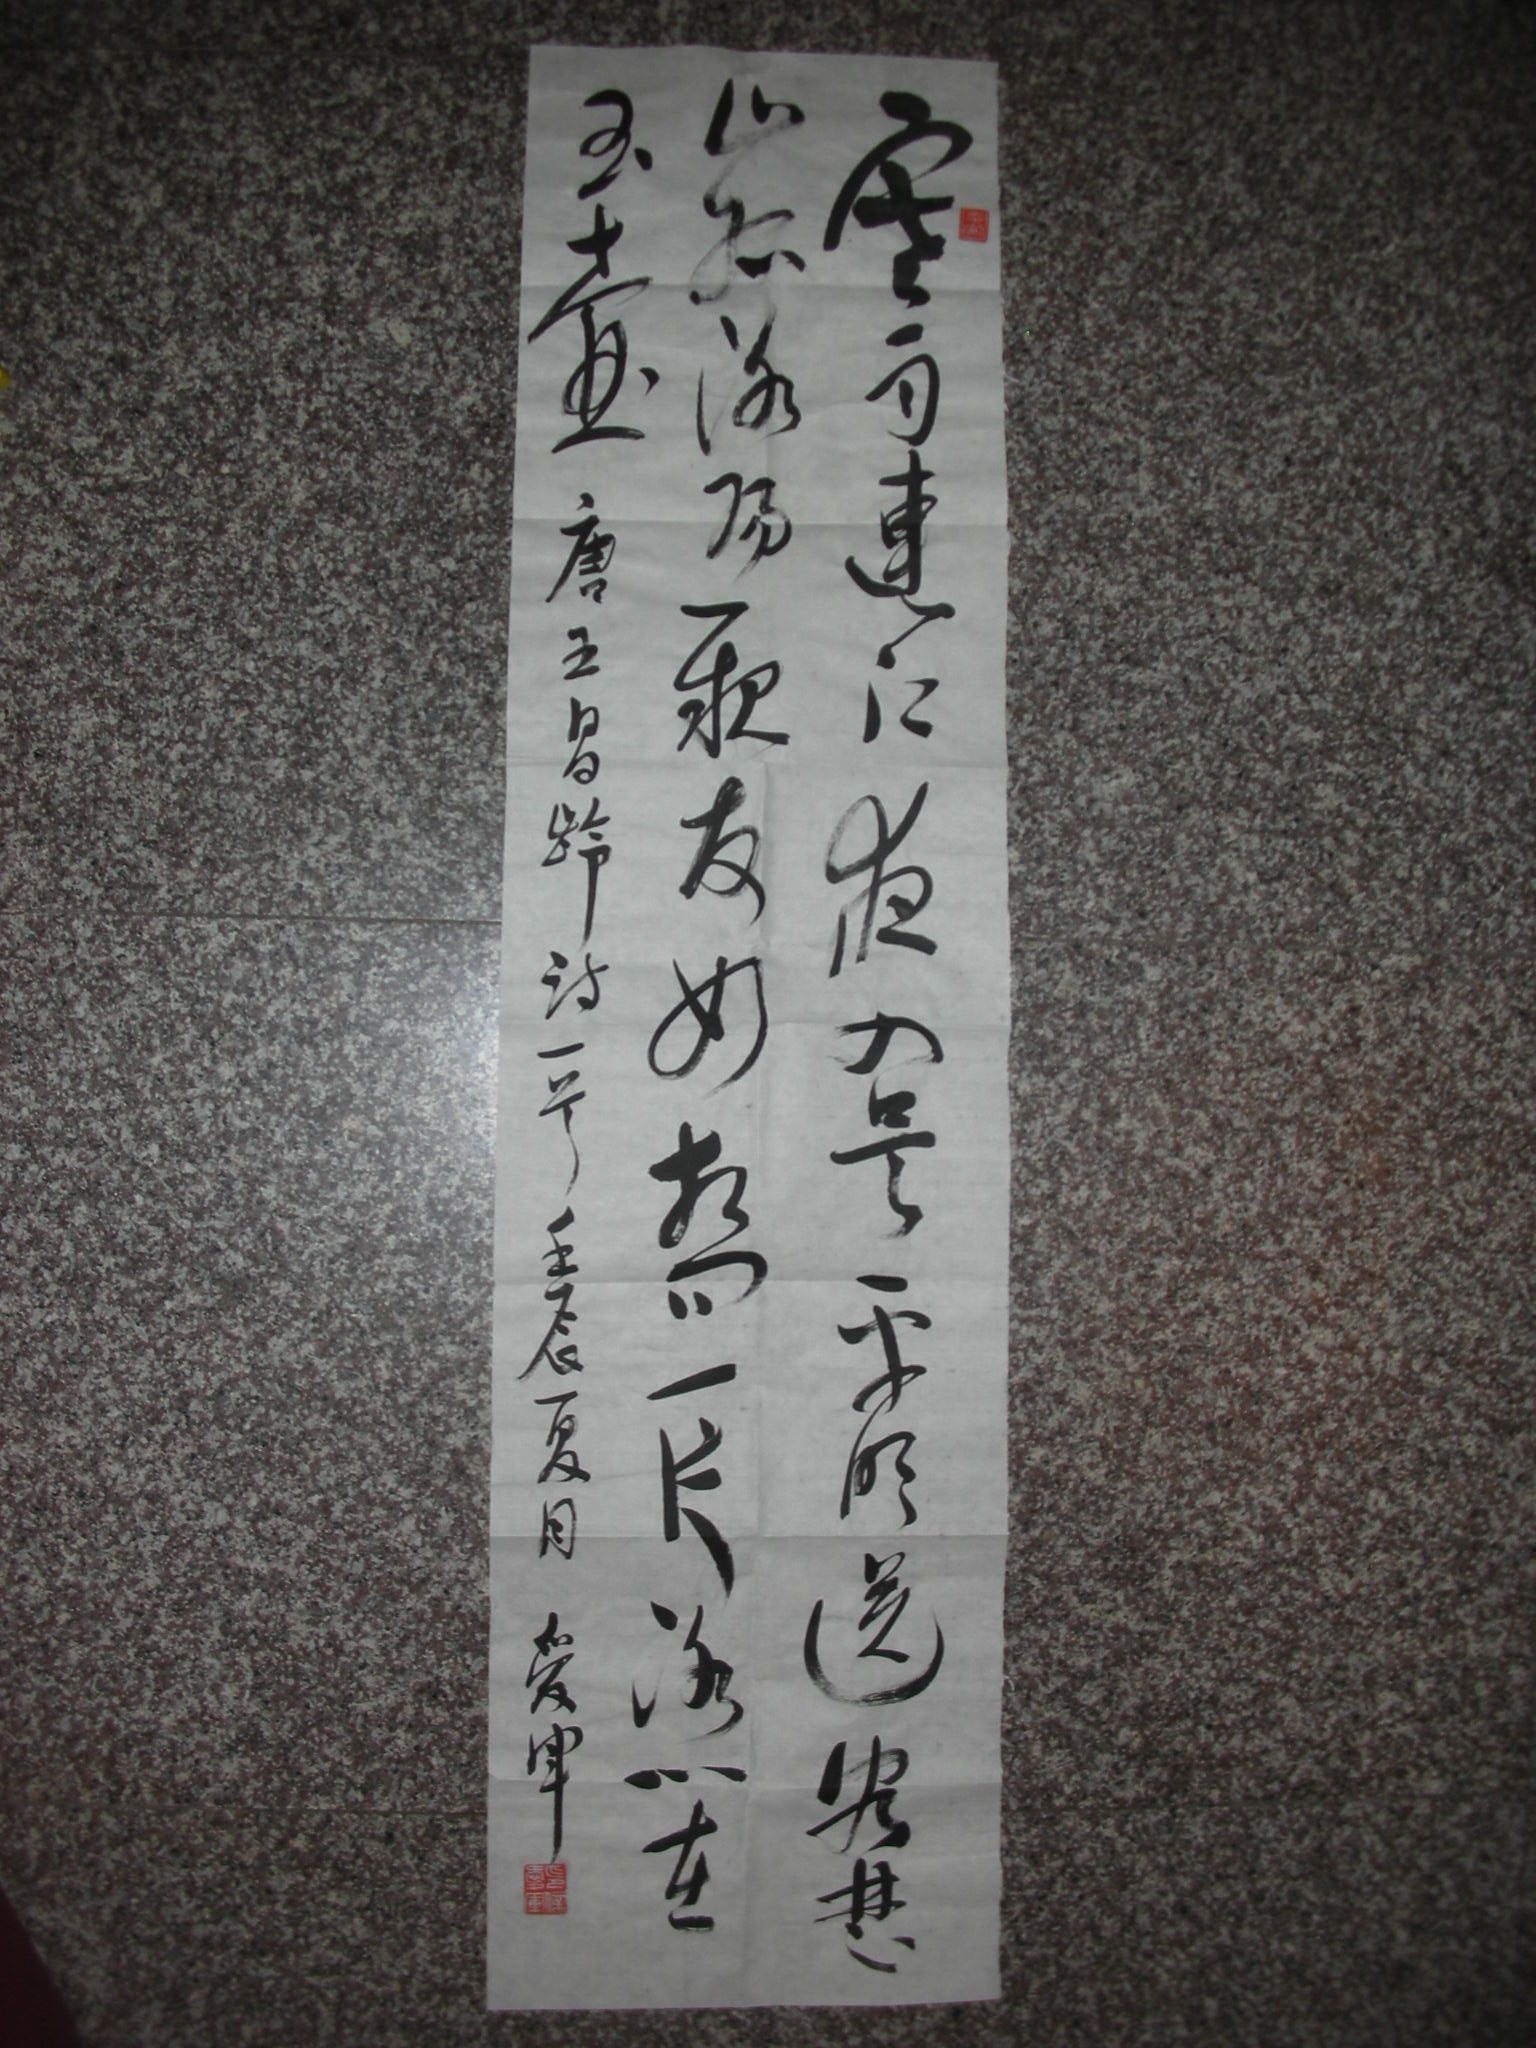 寒雨連江夜入吴平明送客楚
山孤洛陽親友如相問一片冰心在
玉壶 唐王昌龄诗一首 壬辰夏月 爱軍